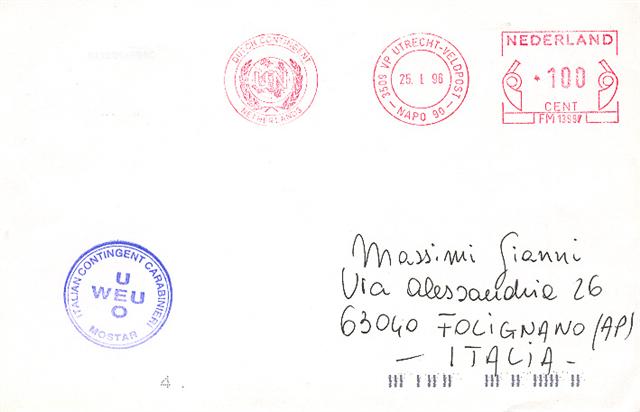 DUTCH CONTINGENT
NETHERLANDS
3509 VP UTRECHT-VELDPOST
25. I. 96
NAPO 90
NEDERLAND
* 100
CENT
FM 13987
ITALIAN CONTINGENT CARABINIERI
U
WEU
O
MOSTAR
Massimi Gianni
Via Alessandria 26
63040 FOLIGNANO (AP)
- ITALIA -
4.